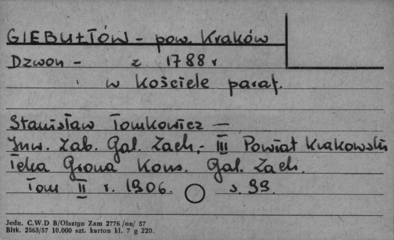 GIEBUŁTÓW - pow. Kraków
Dzwon - z 1788 r
w kościele paraf.
Stanisław Tomkowicz -
Inw. Zab. Gal. Zach. - III Powiat Krakowski
Teka Grona Kons. Gal. Zach.
Tom II r. 1906. s. 99.
Jedn. C.W.D B/Olsztyn Zam 2776 /aa/ 57
Bltk. 2563/57 10.000 szt. karton kl. 7 g 220.